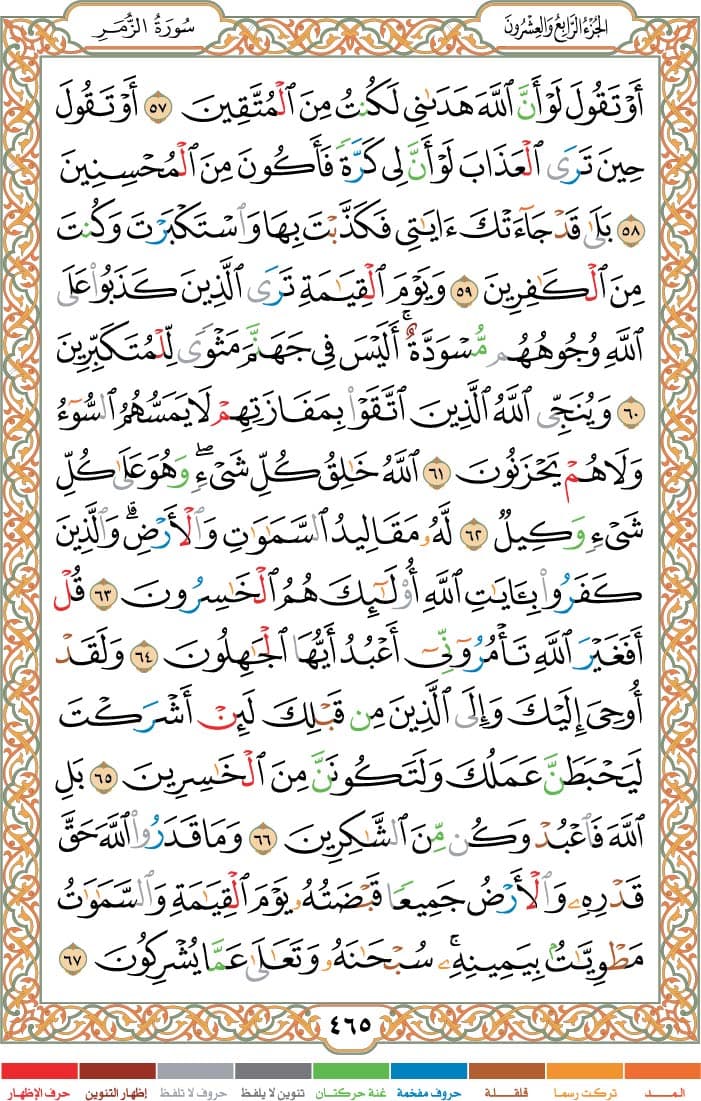 الجزء الرابع والعشرون
سورة الزمر
أَوْ تَقُولَ لَوْ أَنَّ ٱللَّهَ هَدَىٰنِى لَكُنتُ مِنَ ٱلْمُتَّقِينَ ٥٧ أَوْ تَقُولَ
حِينَ تَرَى ٱلْعَذَابَ لَوْ أَنَّ لِى كَرَّةً فَأَكُونَ مِنَ ٱلْمُحْسِنِينَ
٥٨ بَلَىٰ قَدْ جَآءَتْكَ ءَايَٰتِى فَكَذَّبْتَ بِهَا وَٱسْتَكْبَرْتَ وَكُنتَ
مِنَ ٱلْكَٰفِرِينَ ٥٩ وَيَوْمَ ٱلْقِيَٰمَةِ تَرَى ٱلَّذِينَ كَذَبُوا۟ عَلَى
ٱللَّهِ وُجُوهُهُم مُّسْوَدَّةٌ ۚ أَلَيْسَ فِى جَهَنَّمَ مَثْوًى لِّلْمُتَكَبِّرِينَ
٦٠ وَيُنَجِّى ٱللَّهُ ٱلَّذِينَ ٱتَّقَوْا۟ بِمَفَازَتِهِمْ لَا يَمَسُّهُمُ ٱلسُّوٓءُ
وَلَا هُمْ يَحْزَنُونَ ٦١ ٱللَّهُ خَٰلِقُ كُلِّ شَىْءٍ ۖ وَهُوَ عَلَىٰ كُلِّ
شَىْءٍ وَكِيلٌ ٦٢ لَّهُۥ مَقَالِيدُ ٱلسَّمَٰوَٰتِ وَٱلْأَرْضِ ۗ وَٱلَّذِينَ
كَفَرُوا۟ بِـَٔايَٰتِ ٱللَّهِ أُو۟لَٰٓئِكَ هُمُ ٱلْخَٰسِرُونَ ٦٣ قُلْ
أَفَغَيْرَ ٱللَّهِ تَأْمُرُوٓنِّىٓ أَعْبُدُ أَيُّهَا ٱلْجَٰهِلُونَ ٦٤ وَلَقَدْ
أُوحِىَ إِلَيْكَ وَإِلَى ٱلَّذِينَ مِن قَبْلِكَ لَئِنْ أَشْرَكْتَ
لَيَحْبَطَنَّ عَمَلُكَ وَلَتَكُونَنَّ مِنَ ٱلْخَٰسِرِينَ ٦٥ بَلِ
ٱللَّهَ فَٱعْبُدْ وَكُن مِّنَ ٱلشَّٰكِرِينَ ٦٦ وَمَا قَدَرُوا۟ ٱللَّهَ حَقَّ
قَدْرِهِۦ وَٱلْأَرْضُ جَمِيعًا قَبْضَتُهُۥ يَوْمَ ٱلْقِيَٰمَةِ وَٱلسَّمَٰوَٰتُ
مَطْوِيَّٰتٌۢ بِيَمِينِهِۦ ۚ سُبْحَٰنَهُۥ وَتَعَٰلَىٰ عَمَّا يُشْرِكُونَ ٦٧
٤٦٥
المــد تركت رسما قلقلة حروف مفخمة غنة حركتان تنوين لا يلفظ حروف لا تلفظ إظهار التنوين حرف الإظهار